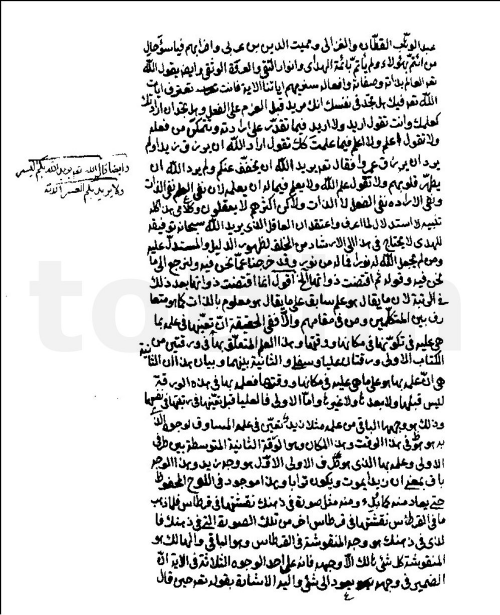 عبد الوهاب القطان والغزالى ومميت الدين بن عربى واضرابهم فيا سؤ حال
من ائتم بهؤلاء ولم ياتم بائمة الهدى وانوار التقى والعروة الوثقى وايضا يقول الله
تعالى العالم بذاته وصفاته وافعاله سنريهم اياتنا الاية فانت تعرف ايات
الله تعالى فيك بل تجد فى نفسك انك مريد قبل العزم على الفعل بل تجد ان ارادتك
كعلمك وانت تقول اريد ولا اريد فيما تقدر على ارادته وتتمكن من فعله
ولا تقول اعلم ولا اعلم فيما علمت كما تقول اراد الله ان يرزق زيدا ولم
يرد ان يرزق عمروا فقال تعالى يريد الله ان يخفف عنكم ولم يرد الله ان
يطهر قلوبهم ولا تقول علم الله ولا يعلم فيما اراد ان يعلم لان نفى العلم نفى الذات
ونفى الارادة نفى الفعل لا الذات ولكن اكثرهم لا يعقلون وكلامى هذا كله
تنبيه لا استدلال لما اعرف واعتقد ان العاقل الذى يريد الله سبحانه توفيقه
للهدى لا يحتاج فى هذا الى الارشاد من الخلق لظهور الدليل والمستدل عليه
ومن لم يجعل الله له نورا فما له من نور وقد خرجنا عما نحن فيه ولنرجع الى ما
نحن فيه وقوله ثم اقتضت ذواتها الخ اقول انما اقتضت ذواتها بعد ذلك
فى الرتبة لان ما يقال هو علم سابق على ما يقال هو معلوم بالذات كما هو متعا
رف بين المتكلمين ومن فى مقامهم والا ففى الحقيقة ان تعينها فى علمه بما
هى عليه فى تكونها فى مكانها ووقتها وهذا العلم المتعلق بها فى ورقتين من
الكتاب الاولى ورقتان عليا وسفلى والثانية بينهما وبيان هذا ان الثانية
هى انه علم بها بما هو على ما هى عليه فى مكانها ووقتها فعلم بها فى هذه الورقة
ليس قبلها ولا بعدها ولا غيرها واما الاولى فالعليا قبل تعينها فى رتبتها فى نفسها
وذلك هو وجهها الباقى من علم مثلا زيد تعين فى علمه المساوق لوجوده الذى
به هو هو فى هذا الوقت وهذا المكان وهو الورقة الثانية المتوسطة بين طرفى
الاولى وعلم بها الذى هو فى الاولى الاول هو وجه زيد وهذا الوجه
باق بعد ان زيد يموت ويكون ترابا وهذا موجود فى اللوح المحفوظ
حتى يعاد منه كما بدء ومنه مثل صورة فى ذهنك نقشتها فى قرطاس فلو ذهب
ما فى القرطاس نقشتها فى قرطاس اخر من تلك الصورة التى فى ذهنك فا
لذى فى ذهنك هو وجه المنقوشة فى القرطاس وهو الباقى والهالك هو
المنقوشة كل شئ هالك الا وجهه فانه على احد الوجوه الثلاثة فى الاية ان
الضمير فى وجهه يعود الى شئ واليه الاشارة بقوله تعالى حين قال
وايضا قال الله تعالى يريد الله بكم اليسر
ولا يريد بكم العسر